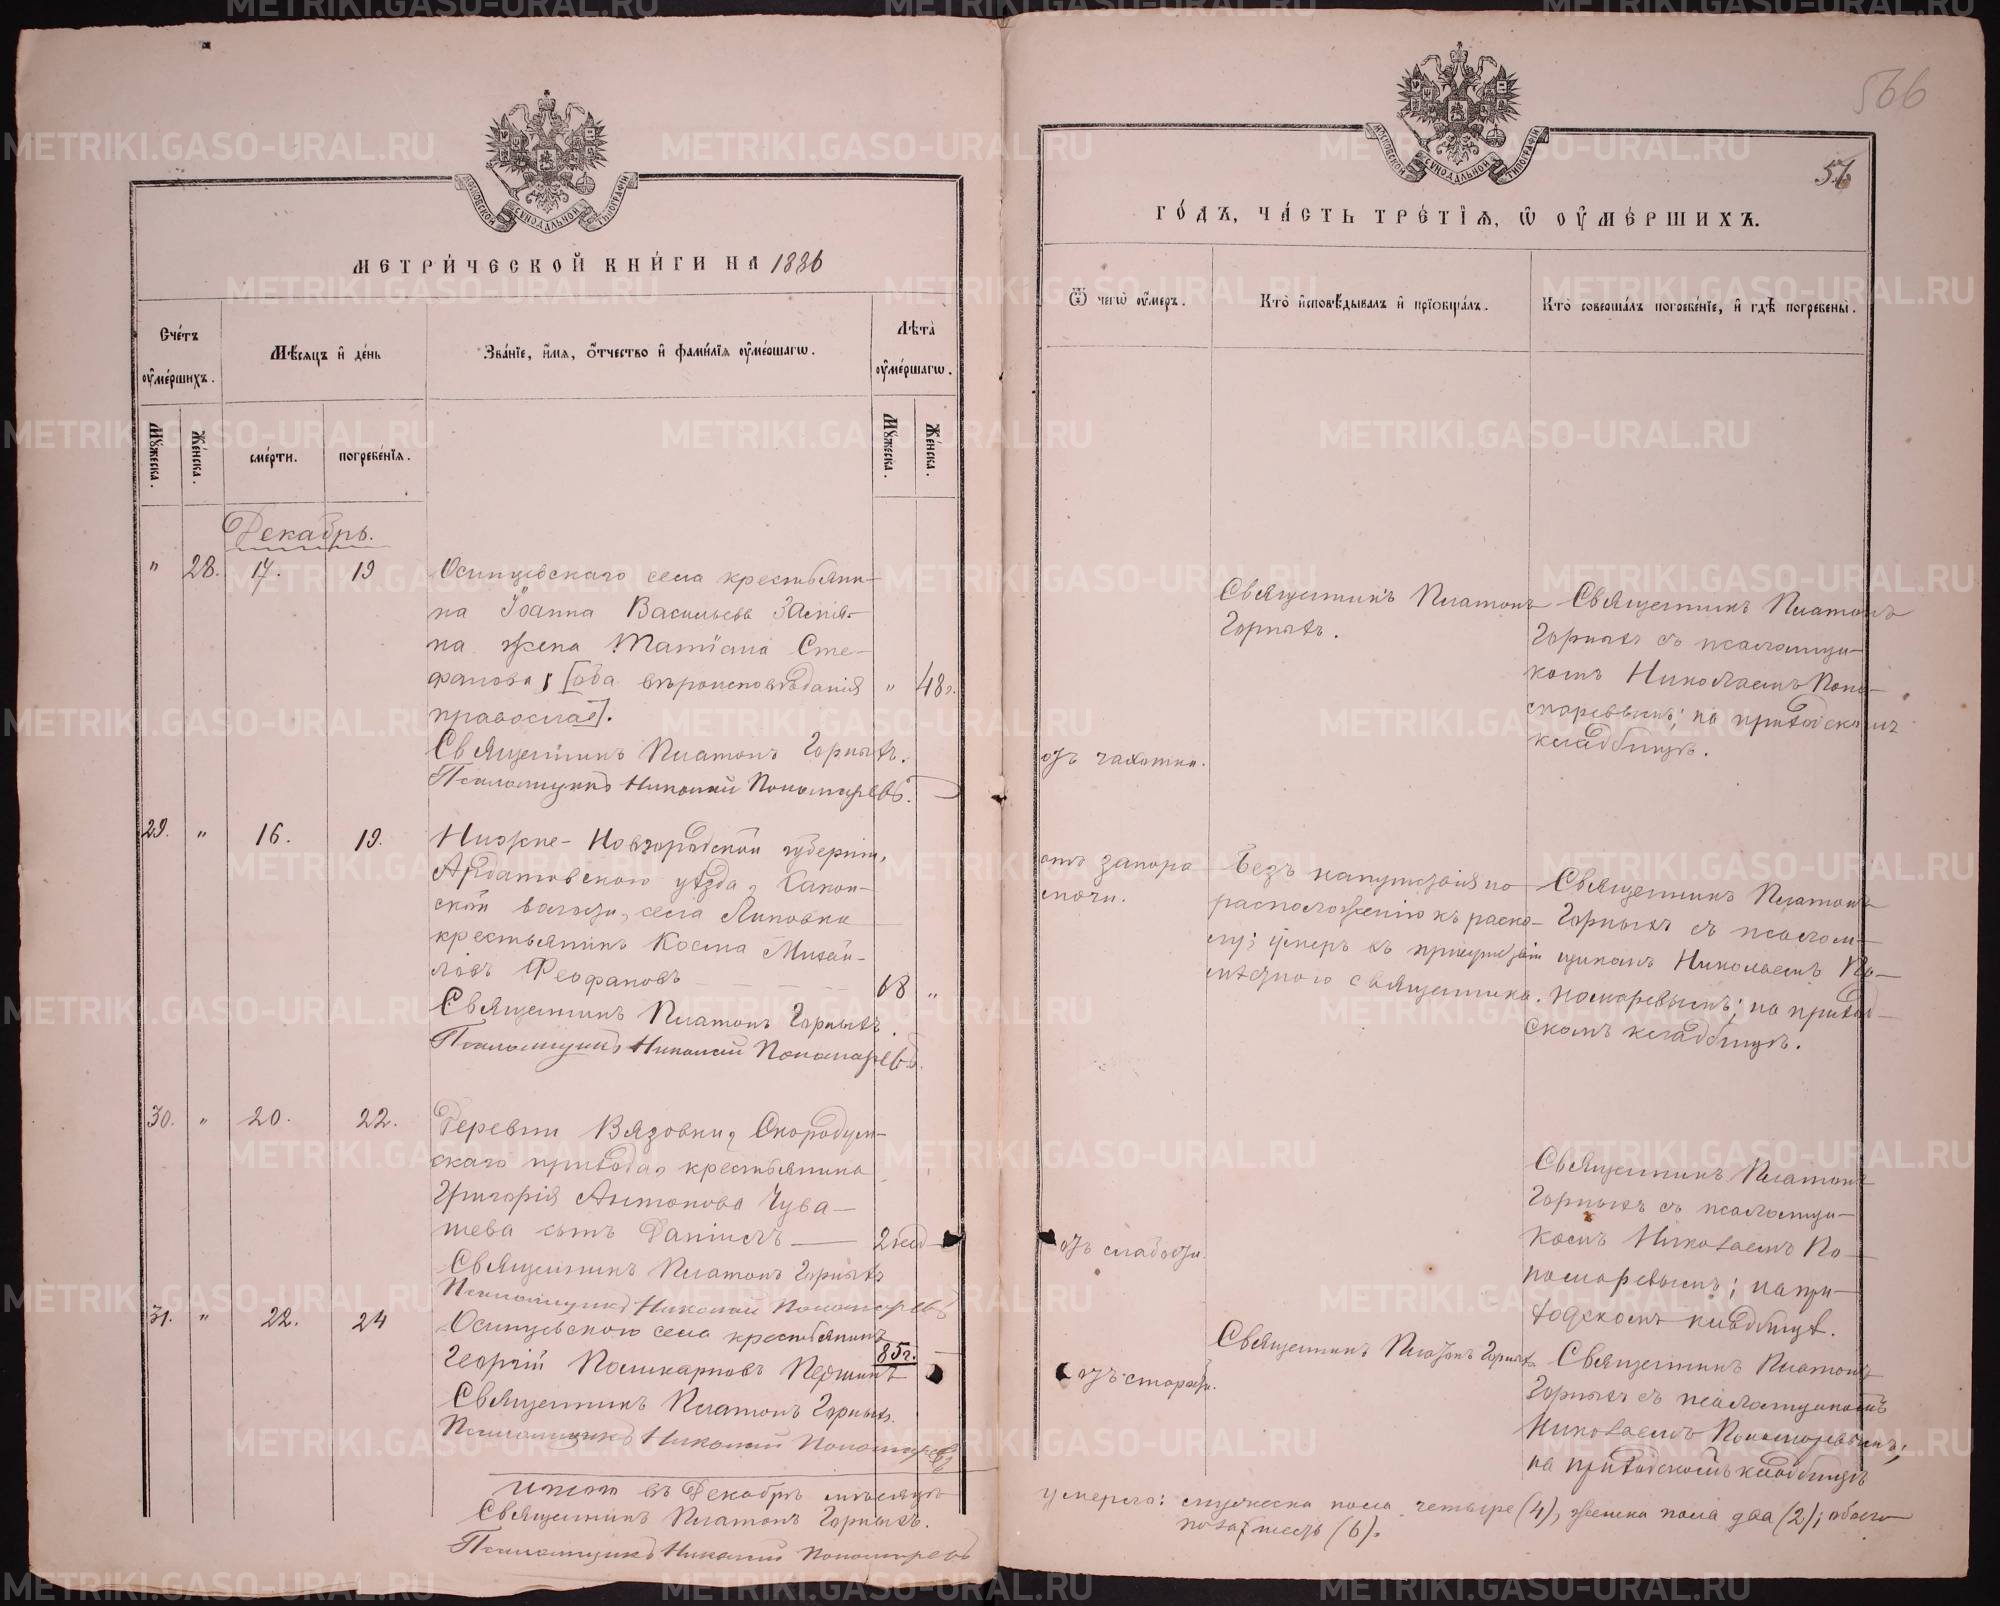 МЕТРИЧЕСКОЙ КНИГИ НА 1886
Счетъ
умершихъ.
Мѣсяцъ и день
Званіе, имя, отчество и фамилія умершаго.
Лѣта
умершаго.
Мужеска.
Женска.
смерти.
погребенія.
Мужеска.
Женска.
Декабрь.
" 28. 17. 19
Осинцевскаго села крестьяни-
на Іоанна Васильева
на жена Татіана Сте-
фанова, [оба вѣроисповѣданія " 48
православ].
Священникъ Платонъ Горныхъ.
Псаломщикъ Николай Пономаревъ.
29. " 16. 19.
Нижне-Новгородской губерніи,
Ардатовскаго уѣзда,
ской волости, села Липовки
крестьянинъ Косма Михай-
ловъ Феофановъ 68 "
Священникъ Платонъ Горныхъ.
Псаломщикъ Николай Пономаревъ.
30. " 20. 22.
Деревни Вязовки, Скородум-
скаго прихода, крестьянина
Григорія Антонова Чува-
шева сынъ Даніилъ — 2 нед
Священникъ Платонъ Горныхъ
Псаломщикъ Николай Пономаревъ
31. " 22. 24
Осинцевскаго села крестьянинъ
Георгій Поликарповъ Першинъ 85 г.
Священникъ Платонъ Горныхъ.
Псаломщикъ Николай Пономаревъ
Итого въ Декабрѣ мѣсяцѣ
Священникъ Платонъ Горныхъ.
Псаломщикъ Николай Пономаревъ
566
56
ГОДЪ, ЧАСТЬ ТРЕТІЯ, Ѡ УМЕРШИХЪ.
Ѿ чего умеръ.
Кто исповѣдывалъ и пріобщалъ.
Кто совершалъ погребеніе, и гдѣ погребены.
отъ чахотки.
Священникъ Платонъ
Горныхъ.
Священникъ Платонъ
Горныхъ съ псаломщи-
комъ Николаемъ Поно-
маревымъ; на приходскомъ
кладбищѣ.
отъ запора
мочи.
Безъ напутствія по
расположенію къ раско-
лу; умеръ въ присутствіи
мѣстного священника.
Священникъ Платонъ
Горныхъ съ псалом-
щикомъ Николаемъ По-
номаревымъ; на приход-
скомъ кладбищѣ.
отъ слабости.
Священникъ Платонъ
Горныхъ съ псаломщи-
комъ Николаемъ По-
номаревымъ; на при-
ходскомъ кладбищѣ.
отъ старости.
Священникъ Платонъ Горныхъ
Священникъ Платонъ
Горныхъ съ псаломщикомъ
Николаемъ Пономаревымъ;
на приходскомъ кладбищѣ
умерло: мужеска пола четыре (4), женска пола два (2); обоего
пола шесть (6).
METRIKI.GASO-URAL.RU